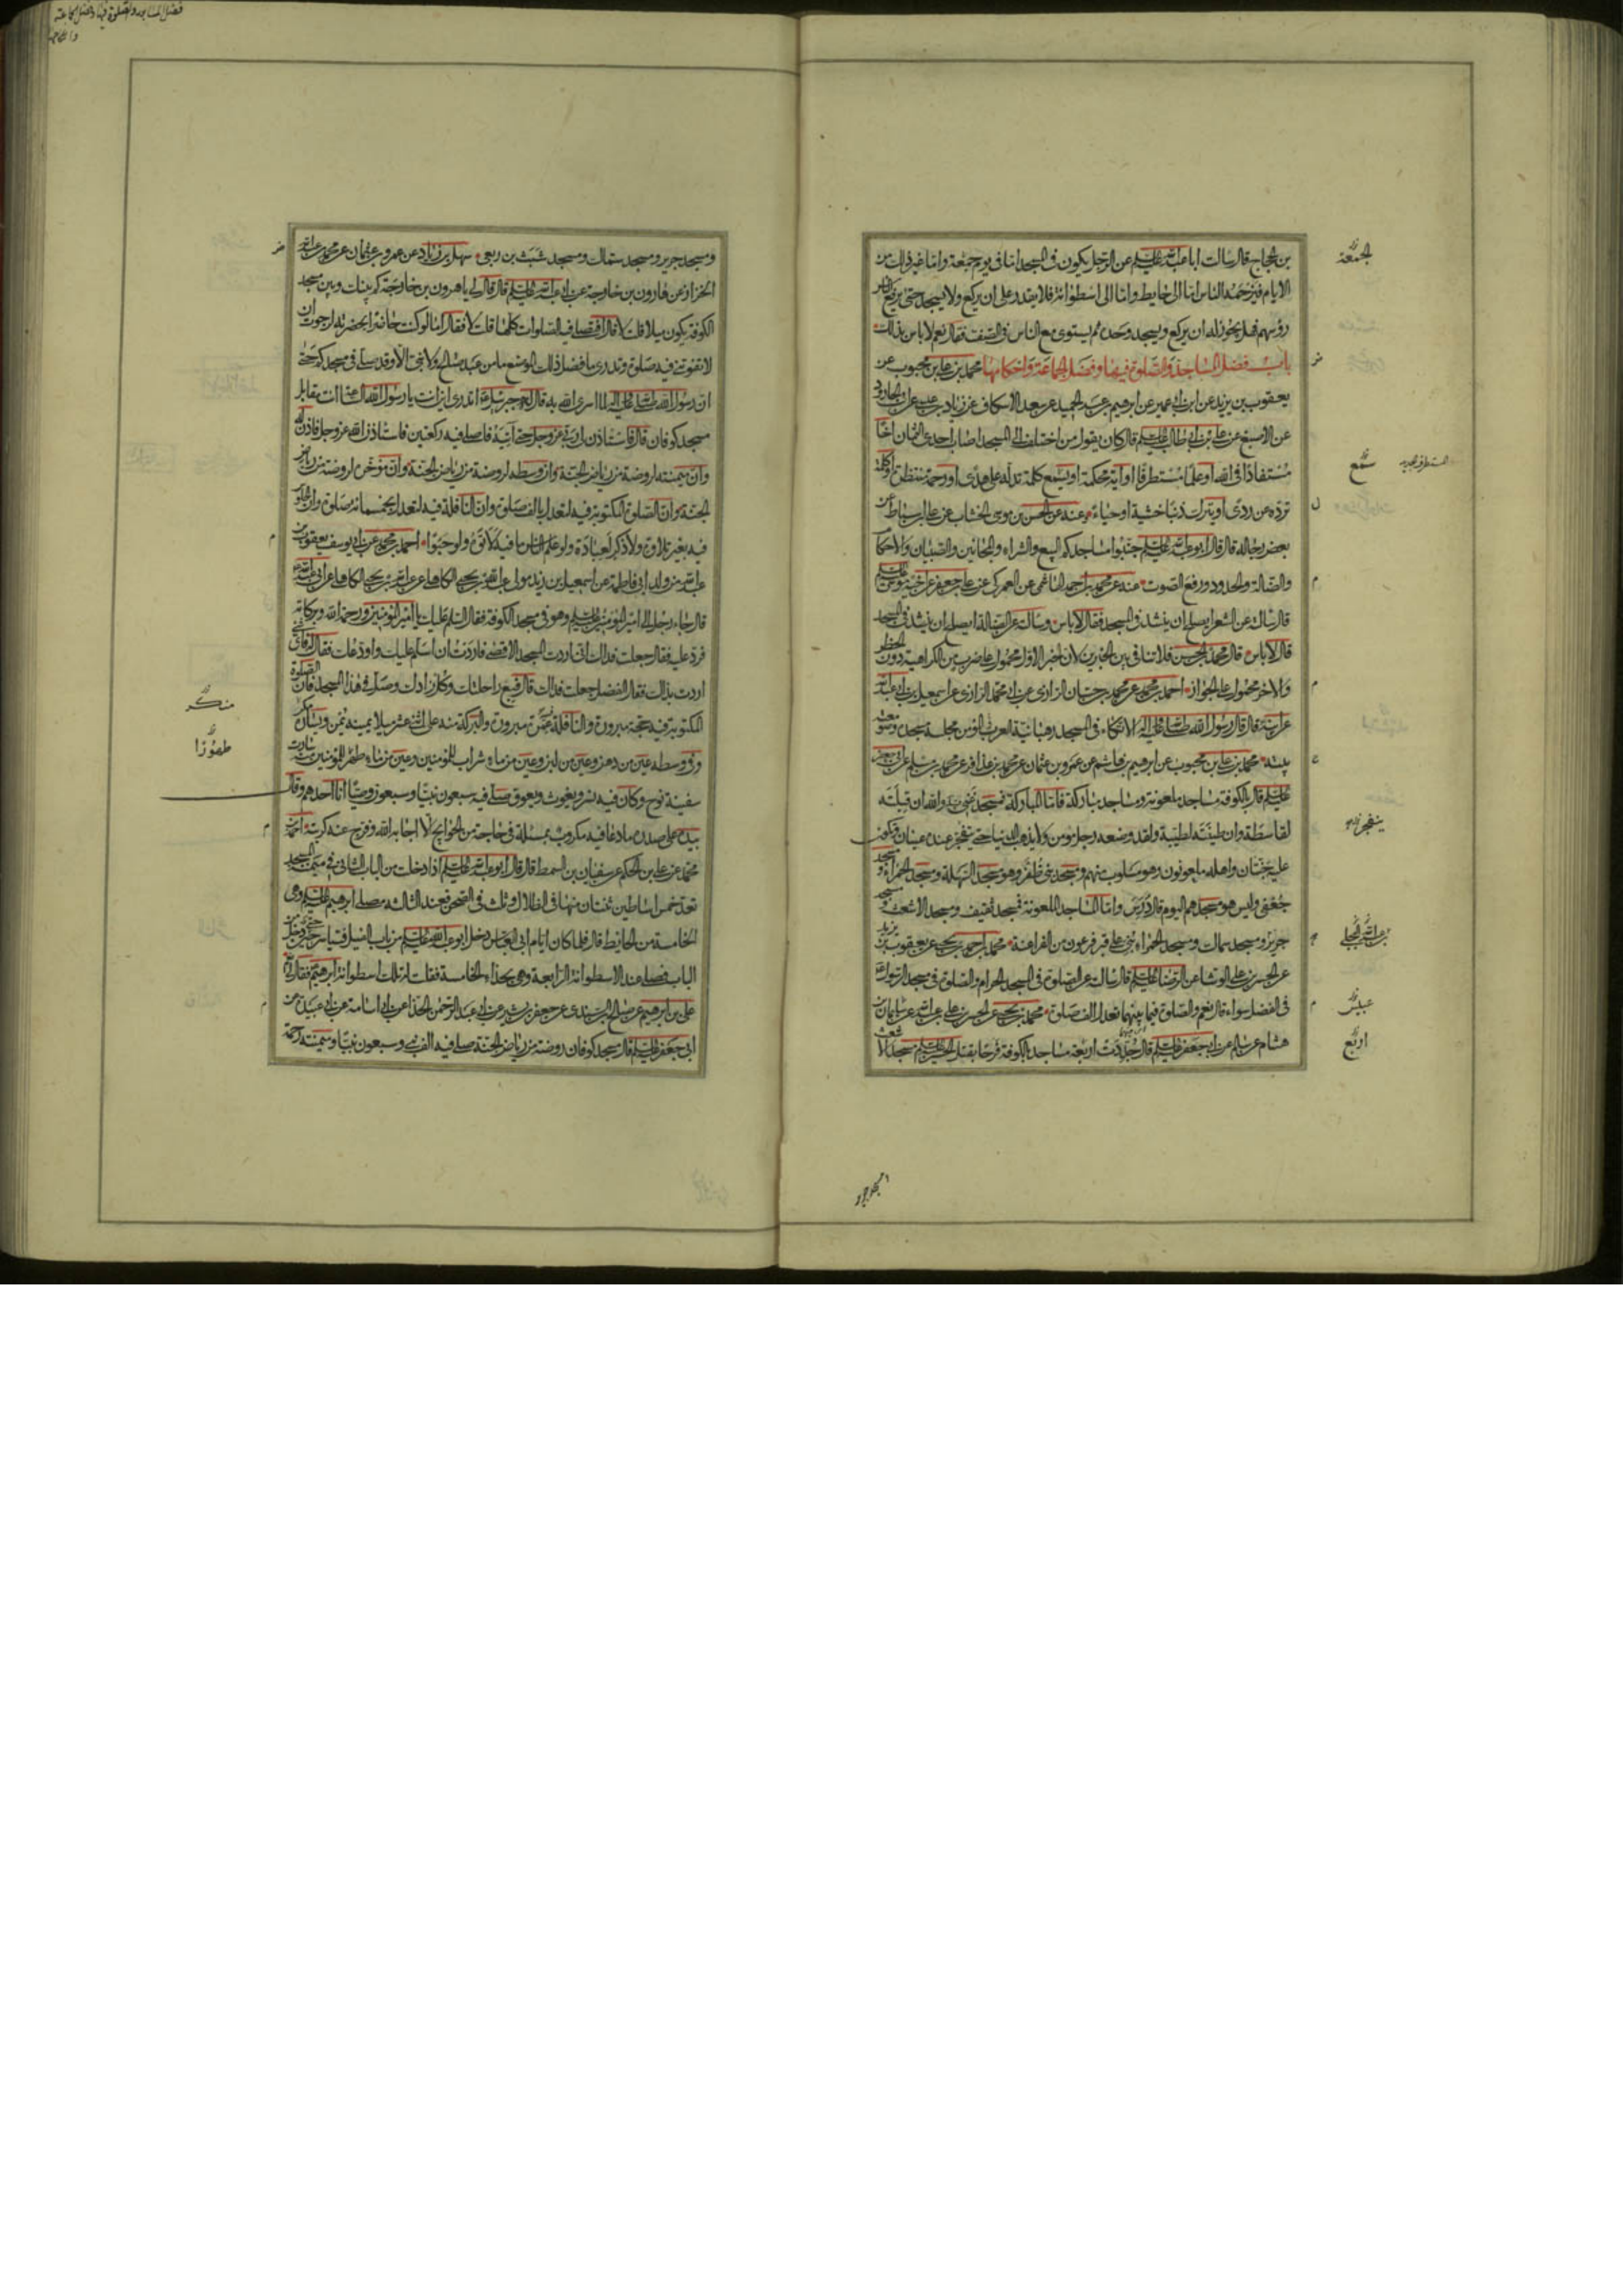 بن الحجاج قال سالت ابا عبد الله عليه السلم عن الرجل يكون فى المسجد اما فى يوم جمعة واما غير ذلك من
الايام فيزحمه الناس اما الى حايط واما الى اسطوانة فلا يقدر على ان يركع ولا يسجد حتى يرفع الناس
رؤسهم فهل يجوز له ان يركع ويسجد وحده ثم يستوى مع الناس فى الصف فقال نعم لا باس بذلك
باب فضل المساجد والصلوة فيها وفضل الجماعة واحكامها محمد بن على بن محبوب عن
يعقوب بن يزيد عن ابن ابى عمير عن ابرهيم بن عبد الحميد عن سعد الاسكاف عن زياد بن عيسى عن ابى الجارود
عن الاصبغ عن على بن ابى طالب عليه السلم قال كان يقول من اختلف الى المسجد اصاب احدى الثمان اخا
مستفادا فى الله او علما مستطرفا او آية محكمة او يسمع كلمة تدله على هدى او رحمة منتظرة او كلمة
ترده عن ردى او يترك ذنبا خشية او حياء وعنه عن الحسن بن موسى الخشاب عن على بن اسباط عن
بعض رجاله قال قال ابو عبد الله عليه السلم جنبوا مساجدكم البيع والشراء والمجانين والصبيان والاحكام
والضالة والحدود ورفع الصوت عنه عن محمد بن احمد الهاشمى عن العمركى عن على بن جعفر عن اخيه موسى عليه السلم
قال سالته عن الشعر ايصلح ان ينشد فى المسجد فقال لا باس وسالته عن الضالة ايصلح ان ينشد فى المسجد
قال لا باس قال محمد بن الحسن فلا تنافى بين الخبرين لان الخبر الاول محمول على ضرب من الكراهية دون الحظر
والاخر محمول على الجواز احمد بن محمد عن محمد بن حسان الرازى عن ابى محمد الرازى عن اسمعيل بن ابى عبد الله
عن ابيه قال قال رسول الله صلى الله عليه واله الاتكاء فى المسجد رهبانية العرب المؤمن مجلسه مسجده وصومعته
بيته محمد بن على بن محبوب عن ابرهيم بن هاشم عن عمرو بن عثمان عن محمد بن عذافر عن محمد بن مسلم عن ابى جعفر
عليه السلم قال بالكوفة مساجد ملعونة ومساجد مباركة فاما المباركة فمسجد غنى والله ان قبلته
لقاسطة وان طينته لطيبة ولقد وضعه رجل مومن ولا يذهب الدنيا حتى ينفجر عنده عينان ويكون
عليه جنتان واهله ملعونون وهو مسلوب منهم ومسجد بنى ظفر وهو مسجد السهلة ومسجد الحمراء ومسجد
جعفى وليس هو مسجدهم اليوم قال درس واما المساجد الملعونة فمسجد ثقيف ومسجد الاشعث ومسجد
جرير ومسجد سماك ومسجد الحمراء بنى على قبر فرعون من الفراعنة محمد بن احمد بن يحيى عن يعقوب بن يزيد
عن الحسن بن على الوشا عن الرضا عليه السلم قال سالته عن الصلوة فى المسجد الحرام والصلوة فى مسجد الرسول
فى الفضل سواء قال نعم والصلوة فيما بينهما تعدل الف صلوة محمد بن يحيى عن الحسن بن على بن عبد الله عن
هشام عن سالم عن ابى جعفر عليه السلم قال جددت اربعة مساجد بالكوفة فرحا بقتل الحسين عليه السلم مسجد الاشعث
الجمعة
سمع
ينفجر
عبيس
اربع
ومسجد جرير ومسجد سماك ومسجد شبث بن ربعى سهل بن زياد عن عمرو بن عثمان عن محمد بن عبد الله
الخزاز عن هارون بن خارجة عن ابى عبد الله عليه السلم قال قال لى يا هرون بن خارجة كم بينك وبين مسجد
الكوفة يكون ميلا قلت لا قال افتصلى فيه الصلوات كلها قلت لا فقال اما لو كنت حاضرا بحضرته لرجوت ان
لا تفوتنى فيه صلوة وتدرى ما فضل ذلك الموضع ما من عبد صالح ولا نبى الا وقد صلى فى مسجد كم حتى
ان رسول الله صلى الله عليه واله لما اسرى الله به قال له جبرئيل اتدرى اين انت يا رسول الله الساعة انت مقابل
مسجد كوفان قال فاستاذن لى ربى عز وجل حتى آتيه فاصلى فيه ركعتين فاستاذن الله عز وجل فاذن له
وان ميمنته لروضة من رياض الجنة وان وسطه لروضة من رياض الجنة وان مؤخره لروضة من رياض
الجنة وان الصلوة المكتوبة فيه لتعدل بالف صلوة وان النافلة فيه لتعدل بخمسمائة صلوة وان الجلوس
فيه بغير تلاوة ولا ذكر لعبادة ولو علم الناس ما فيه لاتوه ولو حبوا احمد بن محمد عن ابى يوسف يعقوب بن
عبد الله من ولد ابى فاطمة عن اسمعيل بن زيد مولى عبد الله بن يحيى الكاهلى عن عبد الله بن يحيى الكاهلى عن ابى عبد الله
قال جاء رجل الى امير المؤمنين عليه السلم وهو فى مسجد الكوفة فقال السلم عليك يا امير المؤمنين ورحمة الله وبركاته
فرد عليه فقال جعلت فداك انى اردت المسجد الاقصى فاردت ان اسلم عليك واودعك فقال له فاى شى
اردت بذلك فقال الفضل جعلت فداك قال فبع راحلتك وكل زادك وصل فى هذا المسجد فان الصلوة
المكتوبة فيه حجة مبرورة والنافلة عمرة مبرورة والبركة منه على اثنى عشر ميلا يمينه يمن ويساره مكر
وفى وسطه عين من دهن وعين من لبن وعين من ماء شراب للمؤمنين وعين من ماء طهر للمؤمنين منه سارت
سفينة نوح وكان فيه نسر ويغوث ويعوق صلى فيه سبعون نبيا وسبعون وصيا انا احدهم وقال
بيده على صدره ما دعا فيه مكروب بمسئلة فى حاجة من الحوايج الا اجابه الله وفرج عنه كربته احمد بن
محمد عن على بن الحكم عن سفيان بن السمط قال قال ابو عبد الله عليه السلم اذا دخلت من الباب الثانى فى ميمنة المسجد
تعد خمس اساطين ثنتان منها فى الظلال وثلث فى الصحن فعند الثالثة مصلى ابرهيم عليه السلم وهى
الخامسة من الحايط قال فلما كان ايام ابى العباس دخل ابو عبد الله عليه السلم من باب الفيل فتياسر حين دخل من
الباب فصلى عند الاسطوانة الرابعة وهى بحذاء الخامسة فقلت له تلك اسطوانة ابرهيم فقال نعم
على بن ابرهيم عن صالح بن السندى عن جعفر بن بشير عن ابى عبد الرحمن الحذا عن ابى اسامة عن ابى عبيدة عن
ابى جعفر عليه السلم قال مسجد كوفان روضة من رياض الجنة صلى فيه الف نبى وسبعون نبيا وميمنته رحمة
منكر
طهورا